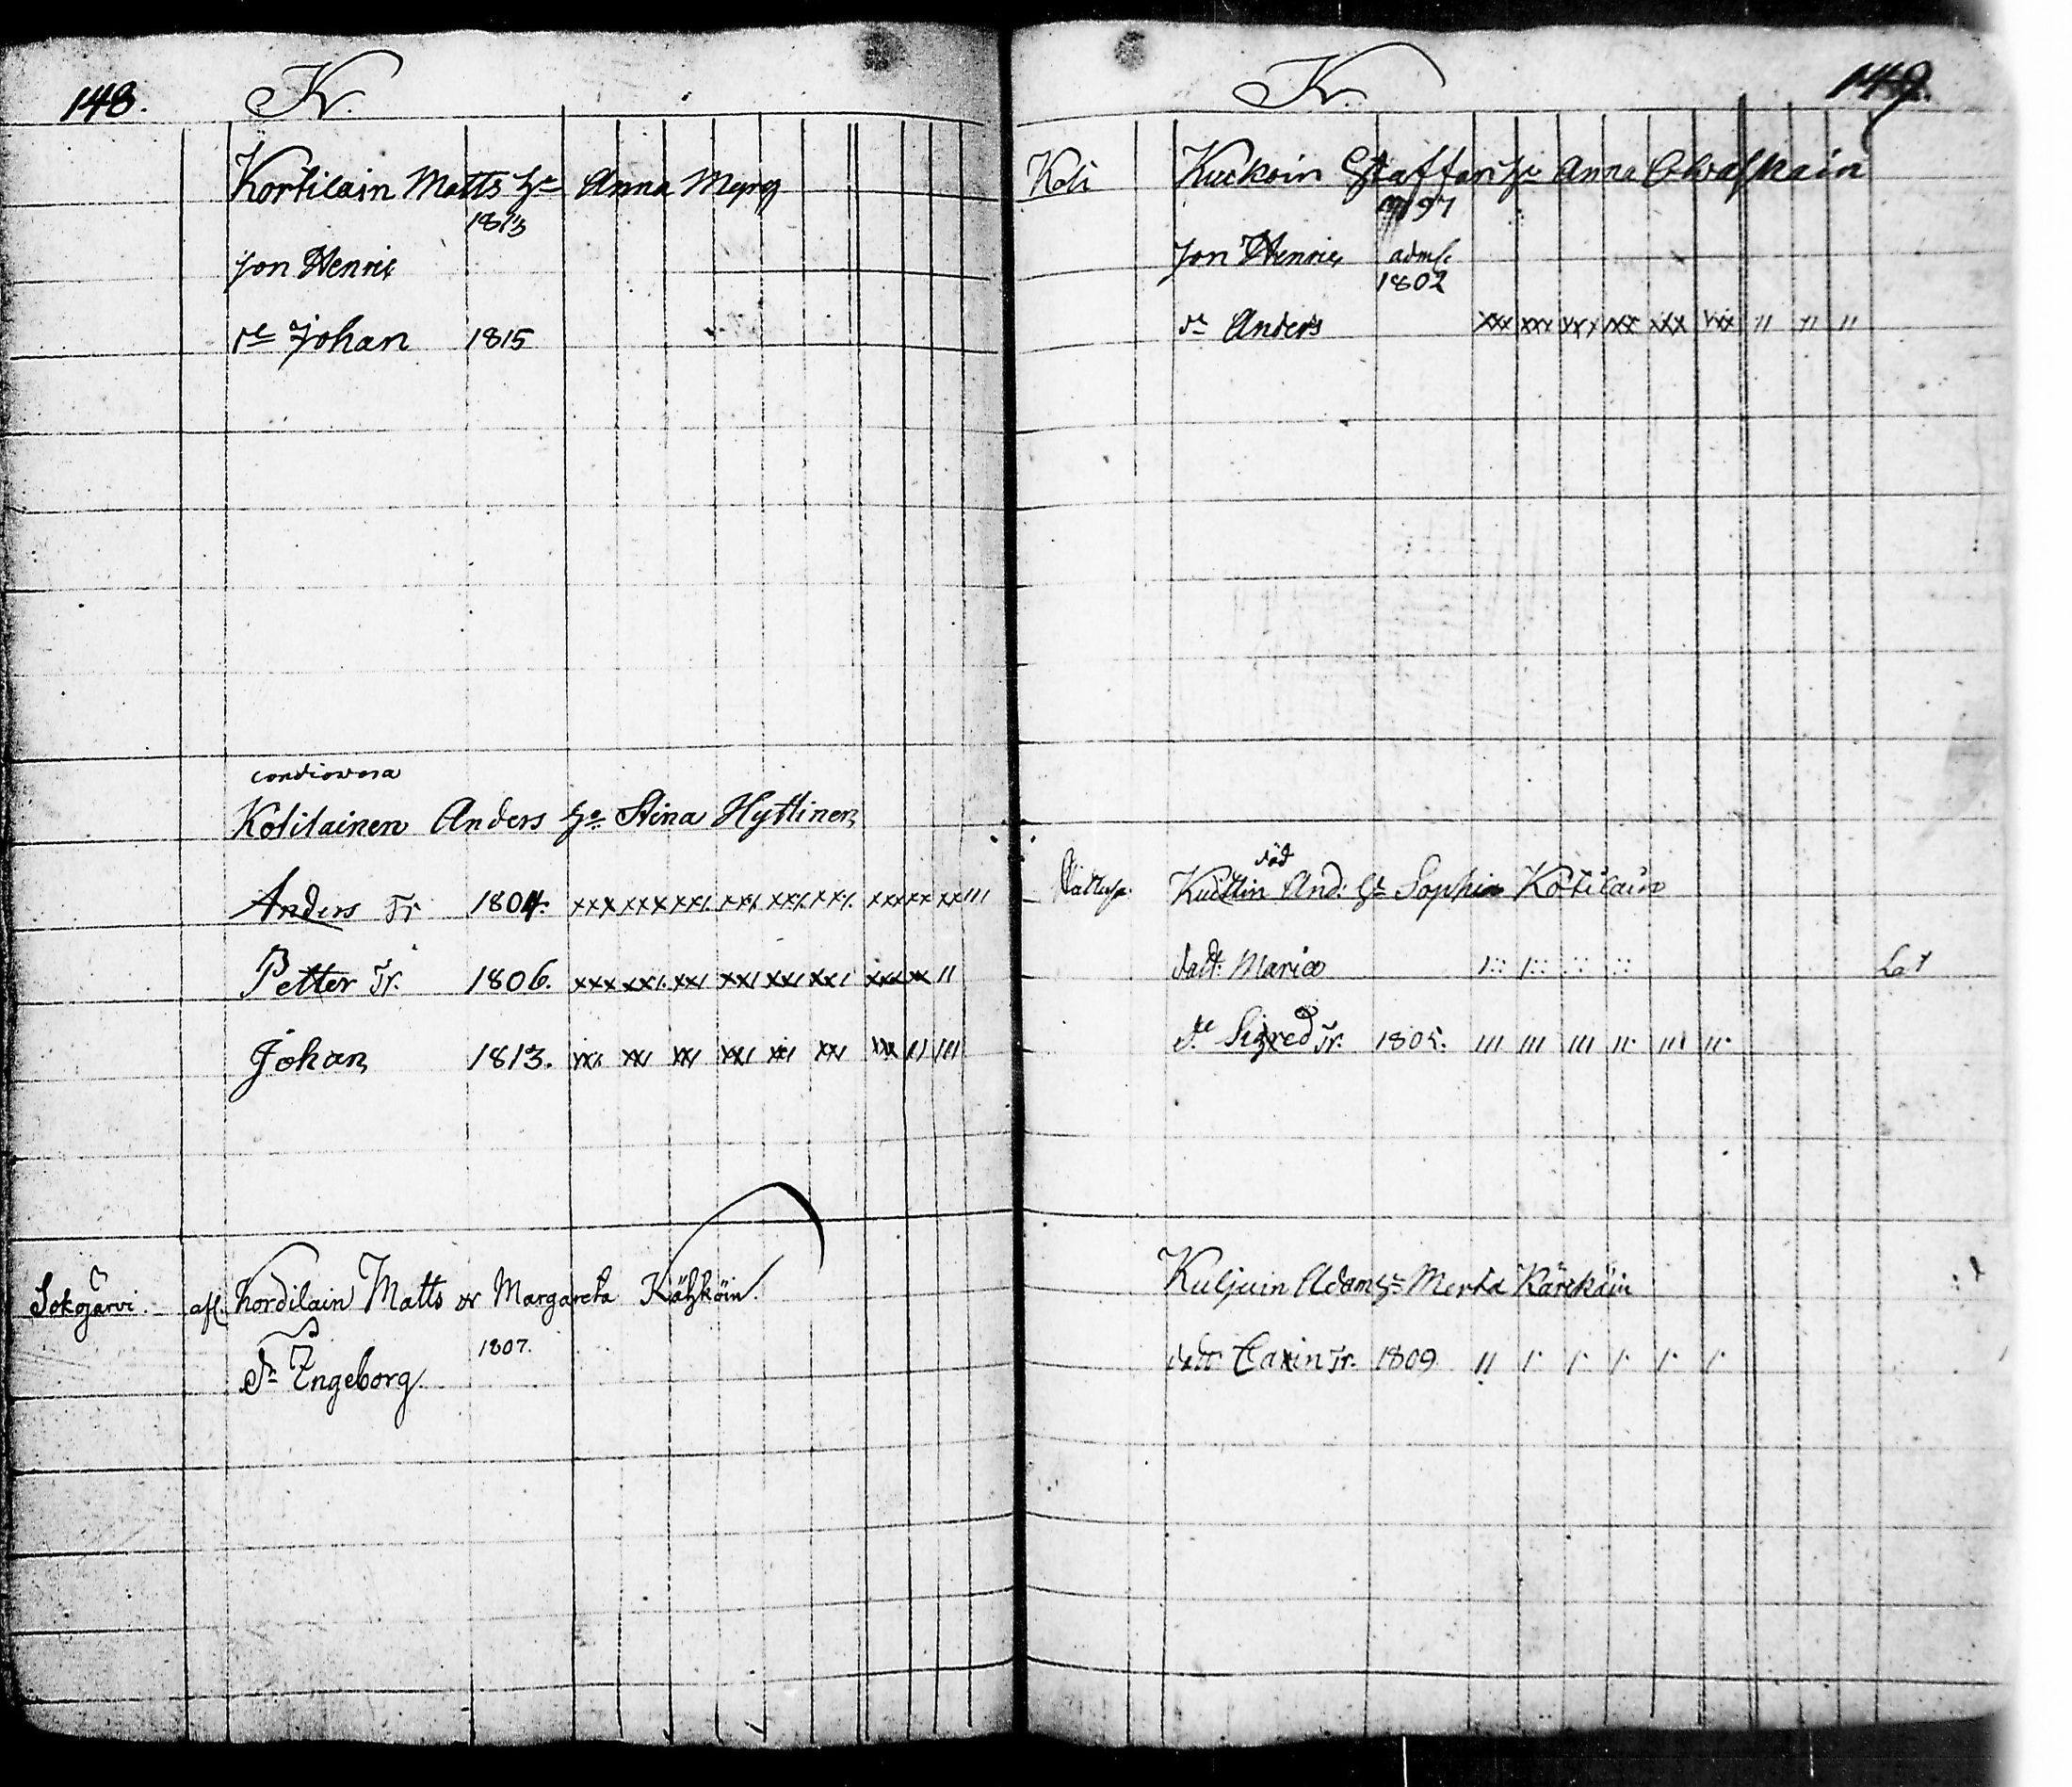 148.
K.
Kortilain Matts hu Anna Myry
1813
son Henric
se Johan 1815
Contiowara
Kotilainen Anders hu Stina Hyttinen
Anders Tr 1804. xxx xxx xx/. xx/ xx/. xx/. xxx xx xx ///
Petter Tr. 1806. xxx xx/. xx/ xx/ xx/ xx/ xxx xx //
Johan 1813. xx/. xx/ xx/ xx/ xx/ xx/ xxx // ///
Sokojärvi. afl. Kordilain Matts or Margareta Kähköin.
1807.
Dr Engeborg.
149.
K.
Koli Kuckoin Staffan hu Anna
97
son Henric adms.
1802
sn Anders xxx xxx xxx xxx xxx xxx // // //
död
Kuittin And: hu Sophia Kotilain
datt: Maria /:: /:: ::: :::
de Sigred Tr. 1805. /// /// /// //. /// //.
Kuljuin Adam hu Merta Kärckäin
datt: Carin Tr. 1809 // /. /. /. /. /.